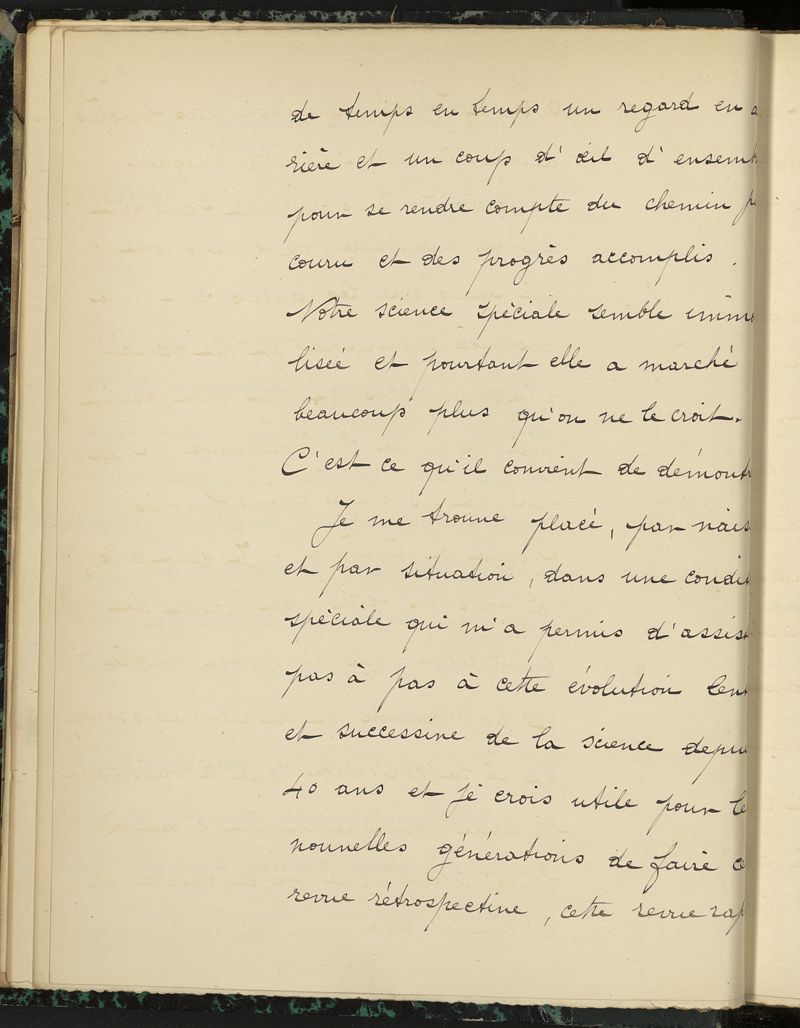 de temps en temps un regard en a
rière et un coup d'œil d'ensemb
pour se rendre compte du chemin p
couru et des progrès accomplis.
Notre science spéciale semble imm
lisée et pourtant elle a marché
beaucoup plus qu'on ne le croit.
C'est ce qu'il convient de démont
Je me trouve placé, par nais
et par situation, dans une condit
spéciale qui m'a permis d'assist
pas à pas à cette évolution lent
et successive de la science depui
40 ans et je crois utile pour le
nouvelles générations de faire ce
revue rétrospective, cette revue rap